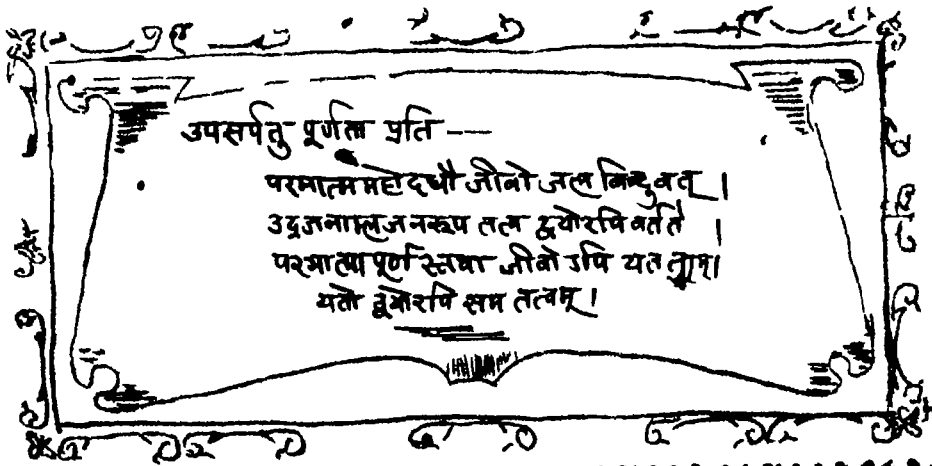 उपसर्पतु पूर्णतां प्रति ---
परमात्ममहोदधौ जीवो जल बिन्दुवत् ।
उद्रजनाम्लजनरूप तत्व द्वयोरपि वर्तते ।
परमात्मा पूर्णस्तथा जीवो ऽपि यतताम् ।
यतो द्वयोरपि सम तत्वम् ।